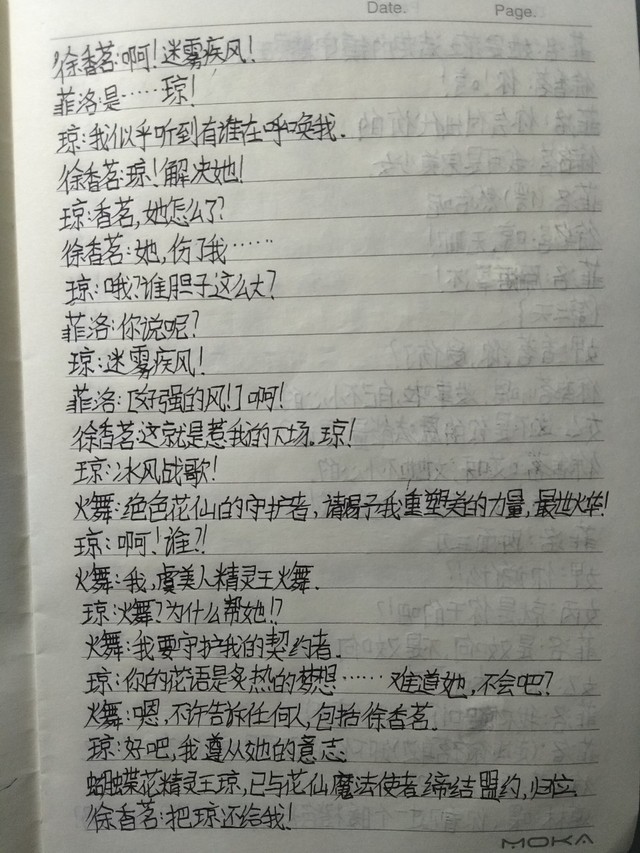 Date.	Page.
徐香茗:啊!迷雾疾风!
菲洛:是……琼!
琼:我似乎听到有谁在呼唤我.
徐香茗:琼!解决她!
琼:香茗,她怎么了?
徐香茗:她,伤了我……
琼:哦?谁胆子这么大?
菲洛:你说呢?
琼:迷雾疾风!
菲洛:[好强的风!]啊!
徐香茗:这就是惹我的下场。琼!
琼:冰风战歌!
火舞:绝色花仙的守护者,请赐予我重塑美的力量,最炫火华!
琼:啊!谁?!
火舞:我,虞美人精灵王火舞.
琼:火舞?为什么帮她!?
火舞:我要守护我的契约者.
琼:你的花语是炙热的梦想……难道她,不会吧?
火舞:嗯,不许告诉任何人,包括徐香茗.
琼:好吧,我遵从她的意志.
蝴蝶花精灵王琼,已与花仙魔法使者缔结盟约,归位.
徐香茗:把琼还给我!
MOKA